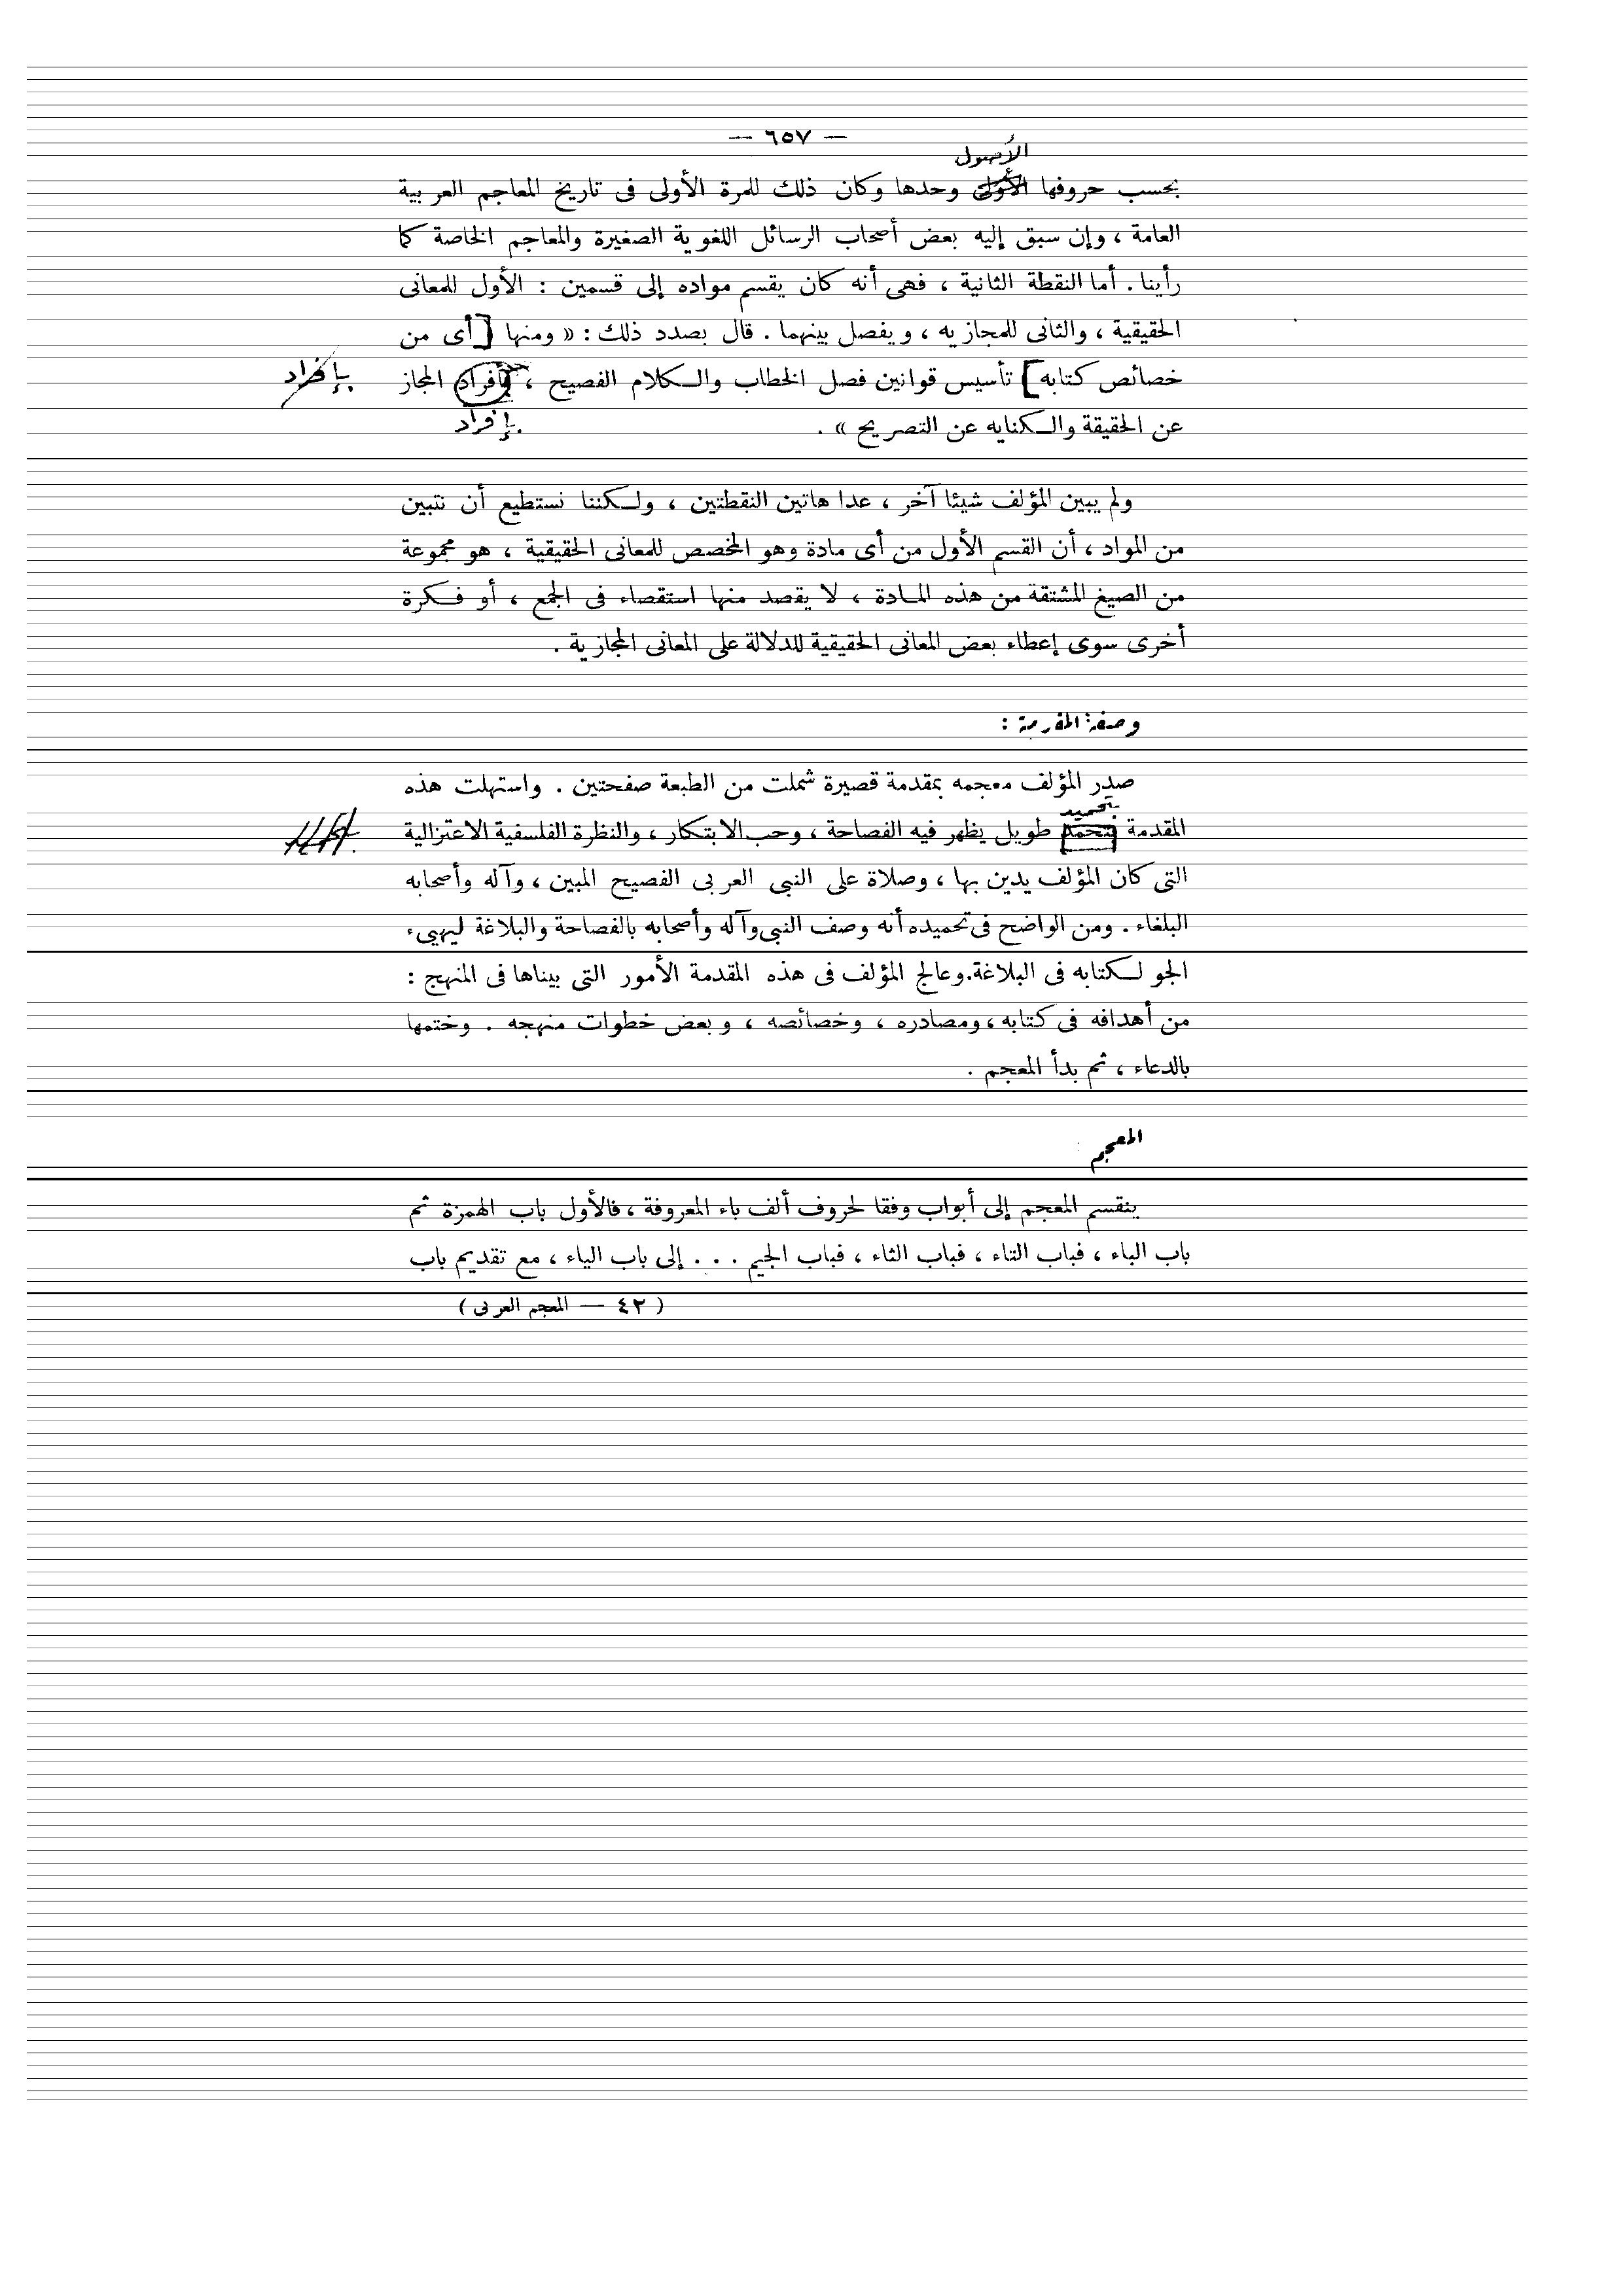 — ٦٥٧ —
الأصول
بحسب حروفها الأولى وحدها وكان ذلك للمرة الأولى فى تاريخ المعاجم العربية
العامة ، وإن سبق إليه بعض أصحاب الرسائل اللغوية الصغيرة والمعاجم الخاصة كما
رأينا . أما النقطة الثانية ، فهى أنه كان يقسم مواده إلى قسمين : الأول للمعانى
الحقيقية ، والثانى للمجازيه ، ويفصل بينهما . قال بصدد ذلك : « ومنها [ أى من
خصائص كتابه ] تأسيس قوانين فصل الخطاب والكلام الفصيح ، بأفراد المجاز
بإفراد
عن الحقيقة والكنايه عن التصريح » .
بإفراد
ولم يبين المؤلف شيئا آخر ، عدا هاتين النقطتين ، ولكننا نستطيع أن نتبين
من المواد ، أن القسم الأول من أى مادة وهو المخصص للمعانى الحقيقية ، هو مجموعة
من الصيغ المشتقة من هذه المادة ، لا يقصد منها استقصاء فى الجمع ، أو فكرة
أخرى سوى إعطاء بعض المعانى الحقيقية للدلالة على المعانى المجازية .
وصفة المقدمة :
صدر المؤلف معجمه بمقدمة قصيرة شملت من الطبعة صفحتين . واستهلت هذه
بتحميد
المقدمة بتحمد طويل يظهر فيه الفصاحة ، وحب الابتكار ، والنظرة الفلسفية الاعتزالية
التى كان المؤلف يدين بها ، وصلاة على النبى العربى الفصيح المبين ، وآله وأصحابه
البلغاء . ومن الواضح فى تحميده أنه وصف النبى وآله وأصحابه بالفصاحة والبلاغة ليهيىء
الجو لكتابه فى البلاغة. وعالج المؤلف فى هذه المقدمة الأمور التى بيناها فى المنهج :
من أهدافه فى كتابه ، ومصادره ، وخصائصه ، وبعض خطوات منهجه . وختمها
بالدعاء ، ثم بدأ المعجم .
المعجم
ينقسم المعجم إلى أبواب وفقا لحروف ألف باء المعروفة ، فالأول باب الهمزة ثم
باب الباء ، فباب التاء ، فباب الثاء ، فباب الجيم . . . إلى باب الياء ، مع تقديم باب
( ٤٢ — المعجم العربى )